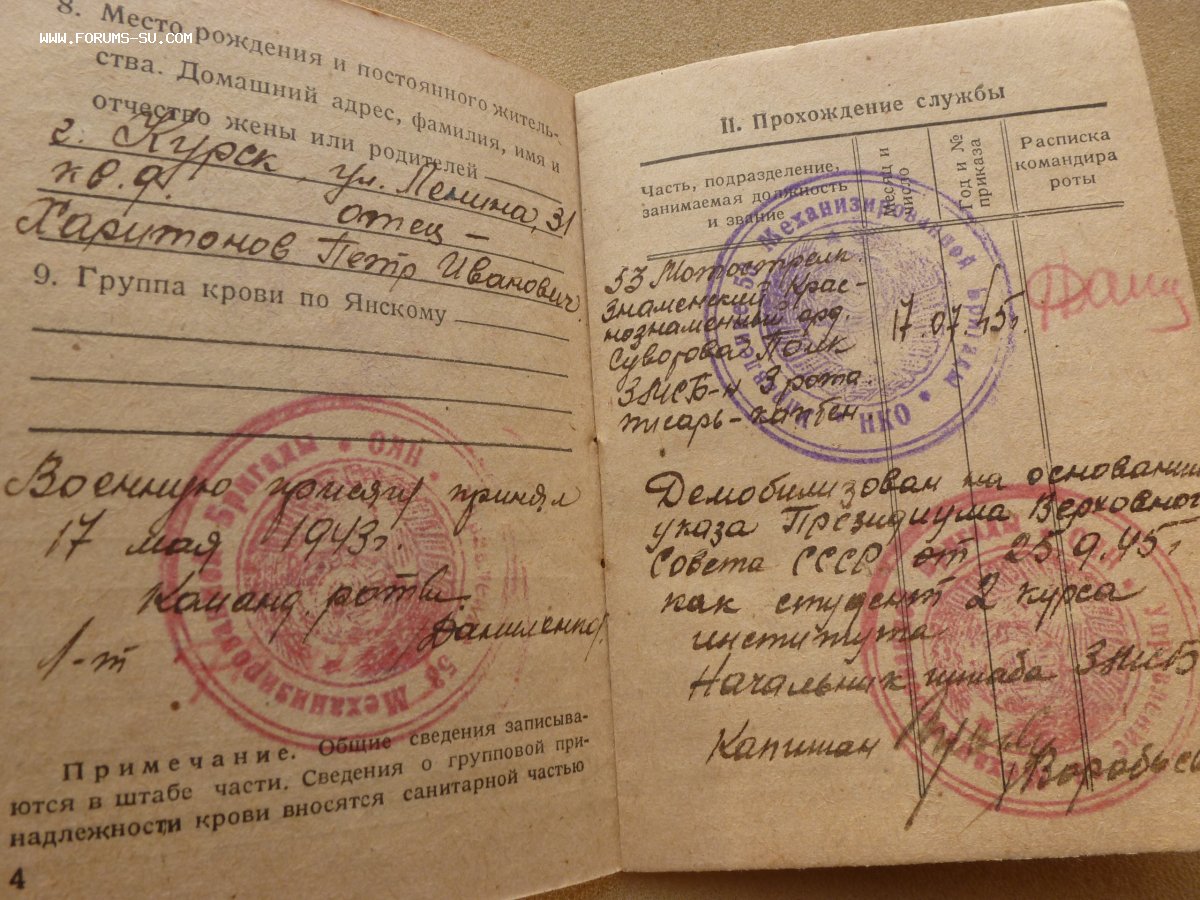 www.forums-su.com
8. Место рождения и постоянного житель-
ства. Домашний адрес, фамилия, имя и
отчество жены или родителей
г. Курск, ул. Ленина, 31
кв. 9. отец –
Харитонов Петр Иванович.
9. Группа крови по Янскому
Военную присягу принял
17 мая 1943г.
Команд. роты
л-т Даниленко
Механизированной Бригады • ОЯП • 58
Примечание. Общие сведения записыва-
ются в штабе части. Сведения о групповой при-
надлежности крови вносятся санитарной частью
4
II. Прохождение службы
Часть, подразделение,
занимаемая должность
и звание
Месяц и
число
Год и №
приказа
Расписка
командира
роты
53 Мотострелк.
Знаменский Крас-
нознаменный орд.
Суворова Полк
3МСБ-н 3 рота.
писарь-
17.07.45г.
Управление 58 Механизированной Бригады • НКО •
Демобилизован на основании
указа Президиума Верховного
Совета СССР от 25.9.45г
как студент 2 курса
института
Начальник штаба 3МСБ
Капитан
Управление